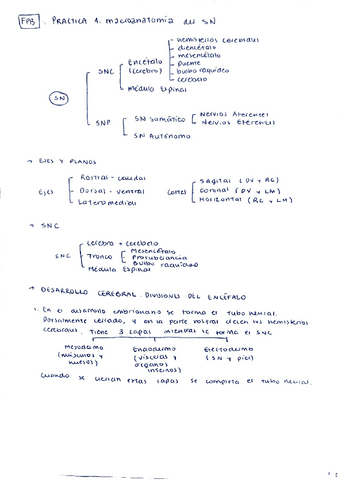 FPB. PRACTICA 1. macroanatomía del SN
SN
SNC
Encéfalo (cerebro)
- hemisferios cerebrales
- diencéfalo
- mesencéfalo
- puente
- bulbo raquídeo
- cerebelo
Médula Espinal
SNP
SN Somático
Nervios Aferentes
Nervios Eferentes
SN Autónomo
→ EJES Y PLANOS
Ejes
Rostral - caudal
Dorsal - ventral
Lateromedial
Cortes
Sagital (DV y RC)
Coronal (DV y LM)
Horizontal (RC y LM)
→ SNC
SNC
Cerebro + cerebelo
Tronco
Mesencéfalo
Protuberancia
Bulbo raquídeo
Médula Espinal
→ DESARROLLO CEREBRAL. DIVISIONES DEL ENCÉFALO
1. En el desarrollo embrionario se forma el tubo neural.
Dorsalmente cerrado, y en la parte rostral los hemisferios
cerebrales. Tiene 3 capas mientras se forma el SNC
Mesodermo (músculos y huesos)
Endodermo (vísceras y órganos internos)
Ectodermo (SN y piel)
Cuando se cierran estas capas se completa el tubo neural.